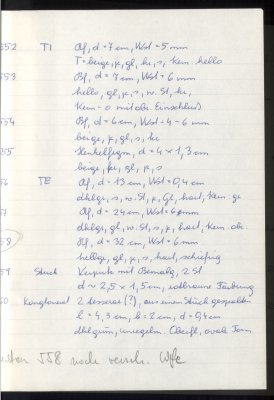 552 TI Rf, d = 7 cm, Wst = 5 mm
T = beige, k, gl, hr, s, Kern. hello
553 Bf, d = 7 cm, Wst = 6 mm
hello, gl, k, s, w. St, hr,
Kern - o mit obr. Einschluß
554 Bf, d = 6 cm, Wst = 4-6 mm
beige, k, gl, s, hr
555 Henkelfrgm, d = 4 x 1,3 cm
beige, gl, k, s
56 TE Rf, d = 13 cm, Wst = 0,4 cm
dklgr, s, w. St, k, Gl, hart, Kern. ge
7 Rf, d = 24 cm, Wst = 6 mm
dklgr, gl, w. St, s, k, hart, Kern. obr.
58 Rf, d = 32 cm, Wst = 6 mm
hellgr, gl, k, s, hart, schiefrig
59 Stuck Verputz mit Bemalg, 2 St
d ~ 2,5 x 1,5 cm, rotbraune Färbung
60 Konglomerat 2 Messer (?), aus einem Stück gespalten
l = 4,3 cm, b = 2 cm, d = 0,4 cm
dklgrün, unregelm. Oberfl, ovale Form
558 noch versch. Wfe